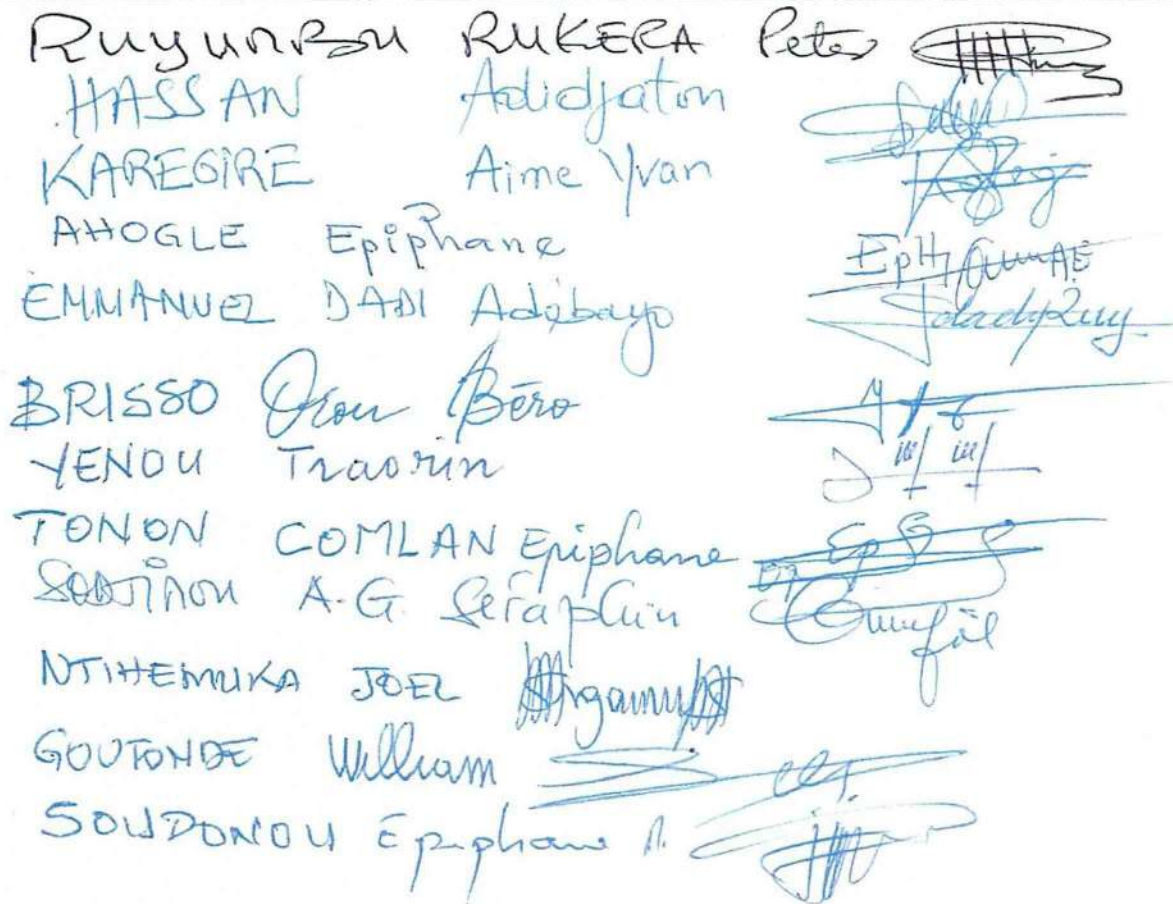 RUYUMBU RUKERA Peter
HASSAN Adidjaton
KAREGIRE Aime Yvan
AHOGLE Epiphane
EMMANUEL DADI Adébayo
BRISSO Orou Béro
YENOU Traorin
TONON COMLAN Epiphane
A.G. Séraphin
NTIHEMUKA JOEL
GOUTONDE William
SOUDONOU Epiphane A.